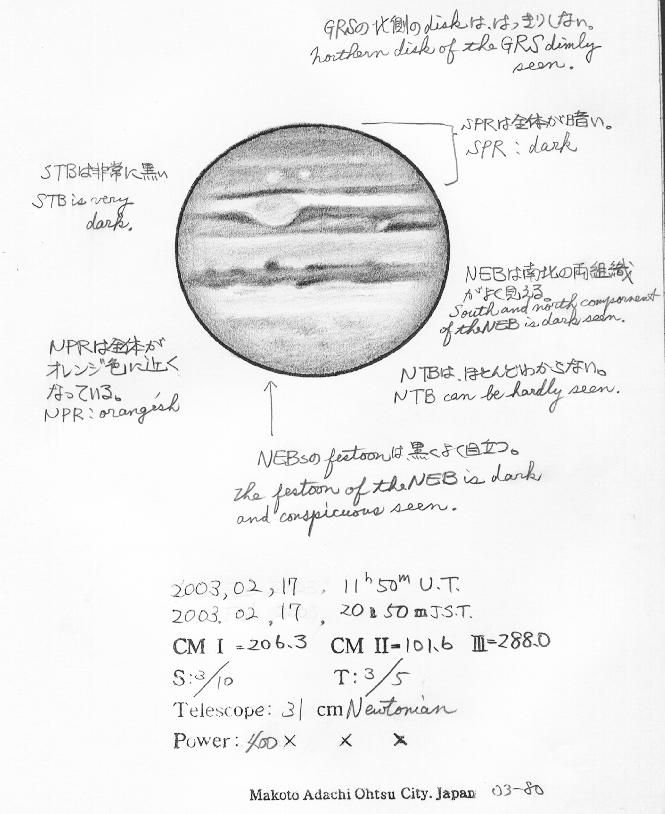 GRSの北側のdiskは、はっきりしない。
northern disk of the GRS dimly
seen.
SPRは全体が暗い。
SPR : dark
STBは非常に黒い
STB is very
dark.
NEBは南北の両組織
がよく見える。
South and north compornent
of the NEB is dark seen.
NPRは全体が
オレンジ色に近く
なっている。
NPR : orangish
NTBは、ほとんどわからない。
NTB can be hardly seen.
NEBsのfestoonは黒くよく目立つ。
The festoon of the NEB is dark
and conspicuous seen.
2003, 02, 17, 11h 50m U.T.
2003. 02, 17, 20h 50m J.S.T.
CM I = 206.3 CM II = 101.6 III = 288.0
S: 3/10 T: 3/5
Telescope: 31 cm Newtonian
Power: 400 × × ×
Makoto Adachi Ohtsu City. Japan 03-80